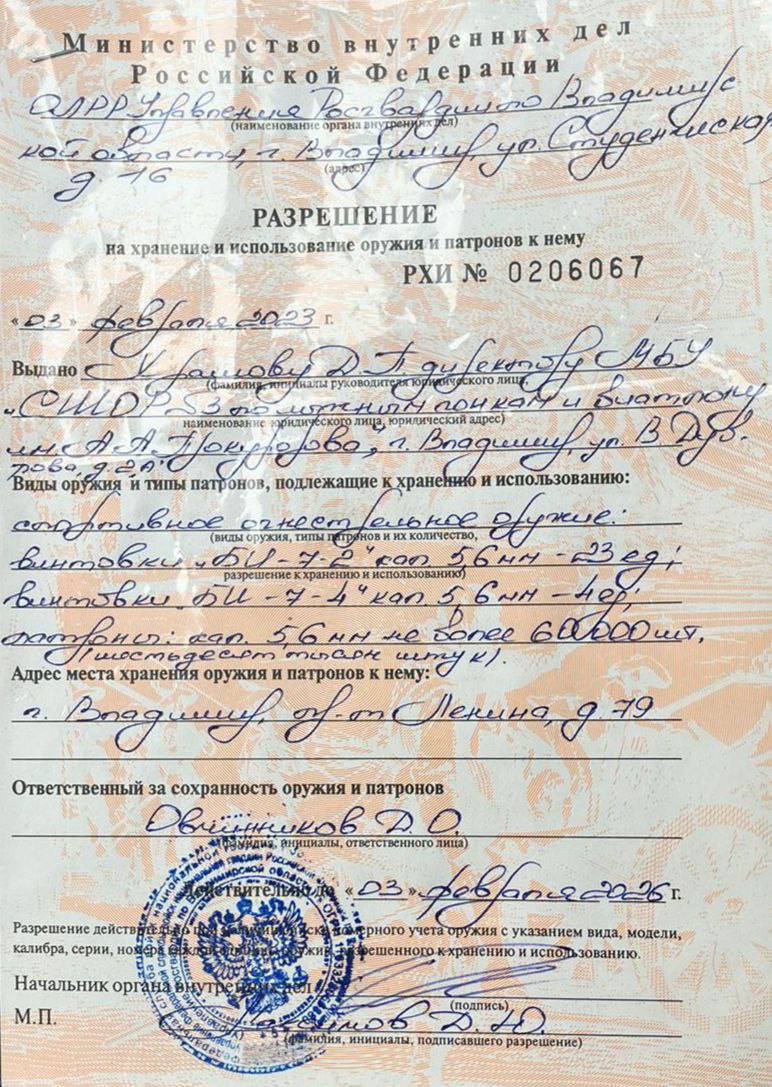 Министерство внутренних дел
Российской Федерации
ОЛРР Управления Росгвардии по Владимирс
(наименование органа внутренних дел)
кой области, г. Владимир, ул. Студенческая
(адрес)
д. 16
РАЗРЕШЕНИЕ
на хранение и использование оружия и патронов к нему
РХИ № 0206067
«03» февраля 2023 г.
Выдано Д.П. директору МБУ
(фамилия, инициалы руководителя юридического лица,
„СШОР №3 по лыжным гонкам и биатлону
наименование юридического лица, юридический адрес)
им. А.А. Прокуророва", г. Владимир, ул. В. Дуб-
рова, д. 2А
Виды оружия и типы патронов, подлежащие к хранению и использованию:
спортивное огнестрельное оружие:
(виды оружия, типы патронов и их количество,
винтовки „БИ-7-2" кал. 5,6 мм - 23 ед;
разрешение к хранению и использованию)
винтовки „БИ-7-4" кал. 5,6 мм - 4 ед;
патроны: кал. 5,6 мм не более 60.000 шт.
(шестьдесят тысяч штук).
Адрес места хранения оружия и патронов к нему:
г. Владимир, пр-т Ленина, д. 79
Ответственный за сохранность оружия и патронов
Овчинников Д.О.
(фамилия, инициалы, ответственного лица)
Действительно до «03» февраля 2026 г.
Разрешение действительно при списка номерного учета оружия с указанием вида, модели,
калибра, серии, номера оружия, разрешенного к хранению и использованию.
Начальник органа внутренних дел
(подпись)
М.П. Д.Ю.
(фамилия, инициалы, подписавшего разрешение)